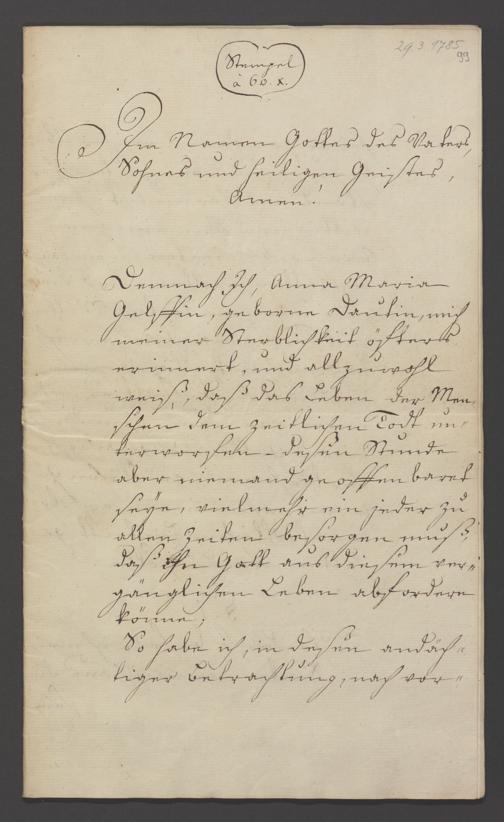 29.3 1785
99
Stempel
à 60. x.
Im Namen Gottes des Vaters,
Sohnes und heiligen Geistes,
Amen!
Demnach Ich, Anna Maria
geborne Dautin, mich
meiner Sterblichkeit öfters
erinnert, und allzuwohl
weiß, daß das Leben der Men-
schen dem zeitlichen Todt un-
terworfen – deßen Stunde
aber niemand geoffenbaret
seye, vielmehr ein jeder zu
allen Zeiten besorgen muß,
daß ihn Gott aus diesem ver-
gänglichen Leben abfordern
könne;
So habe ich, in deßen andäch-
tiger Betrachtung, nach vor-